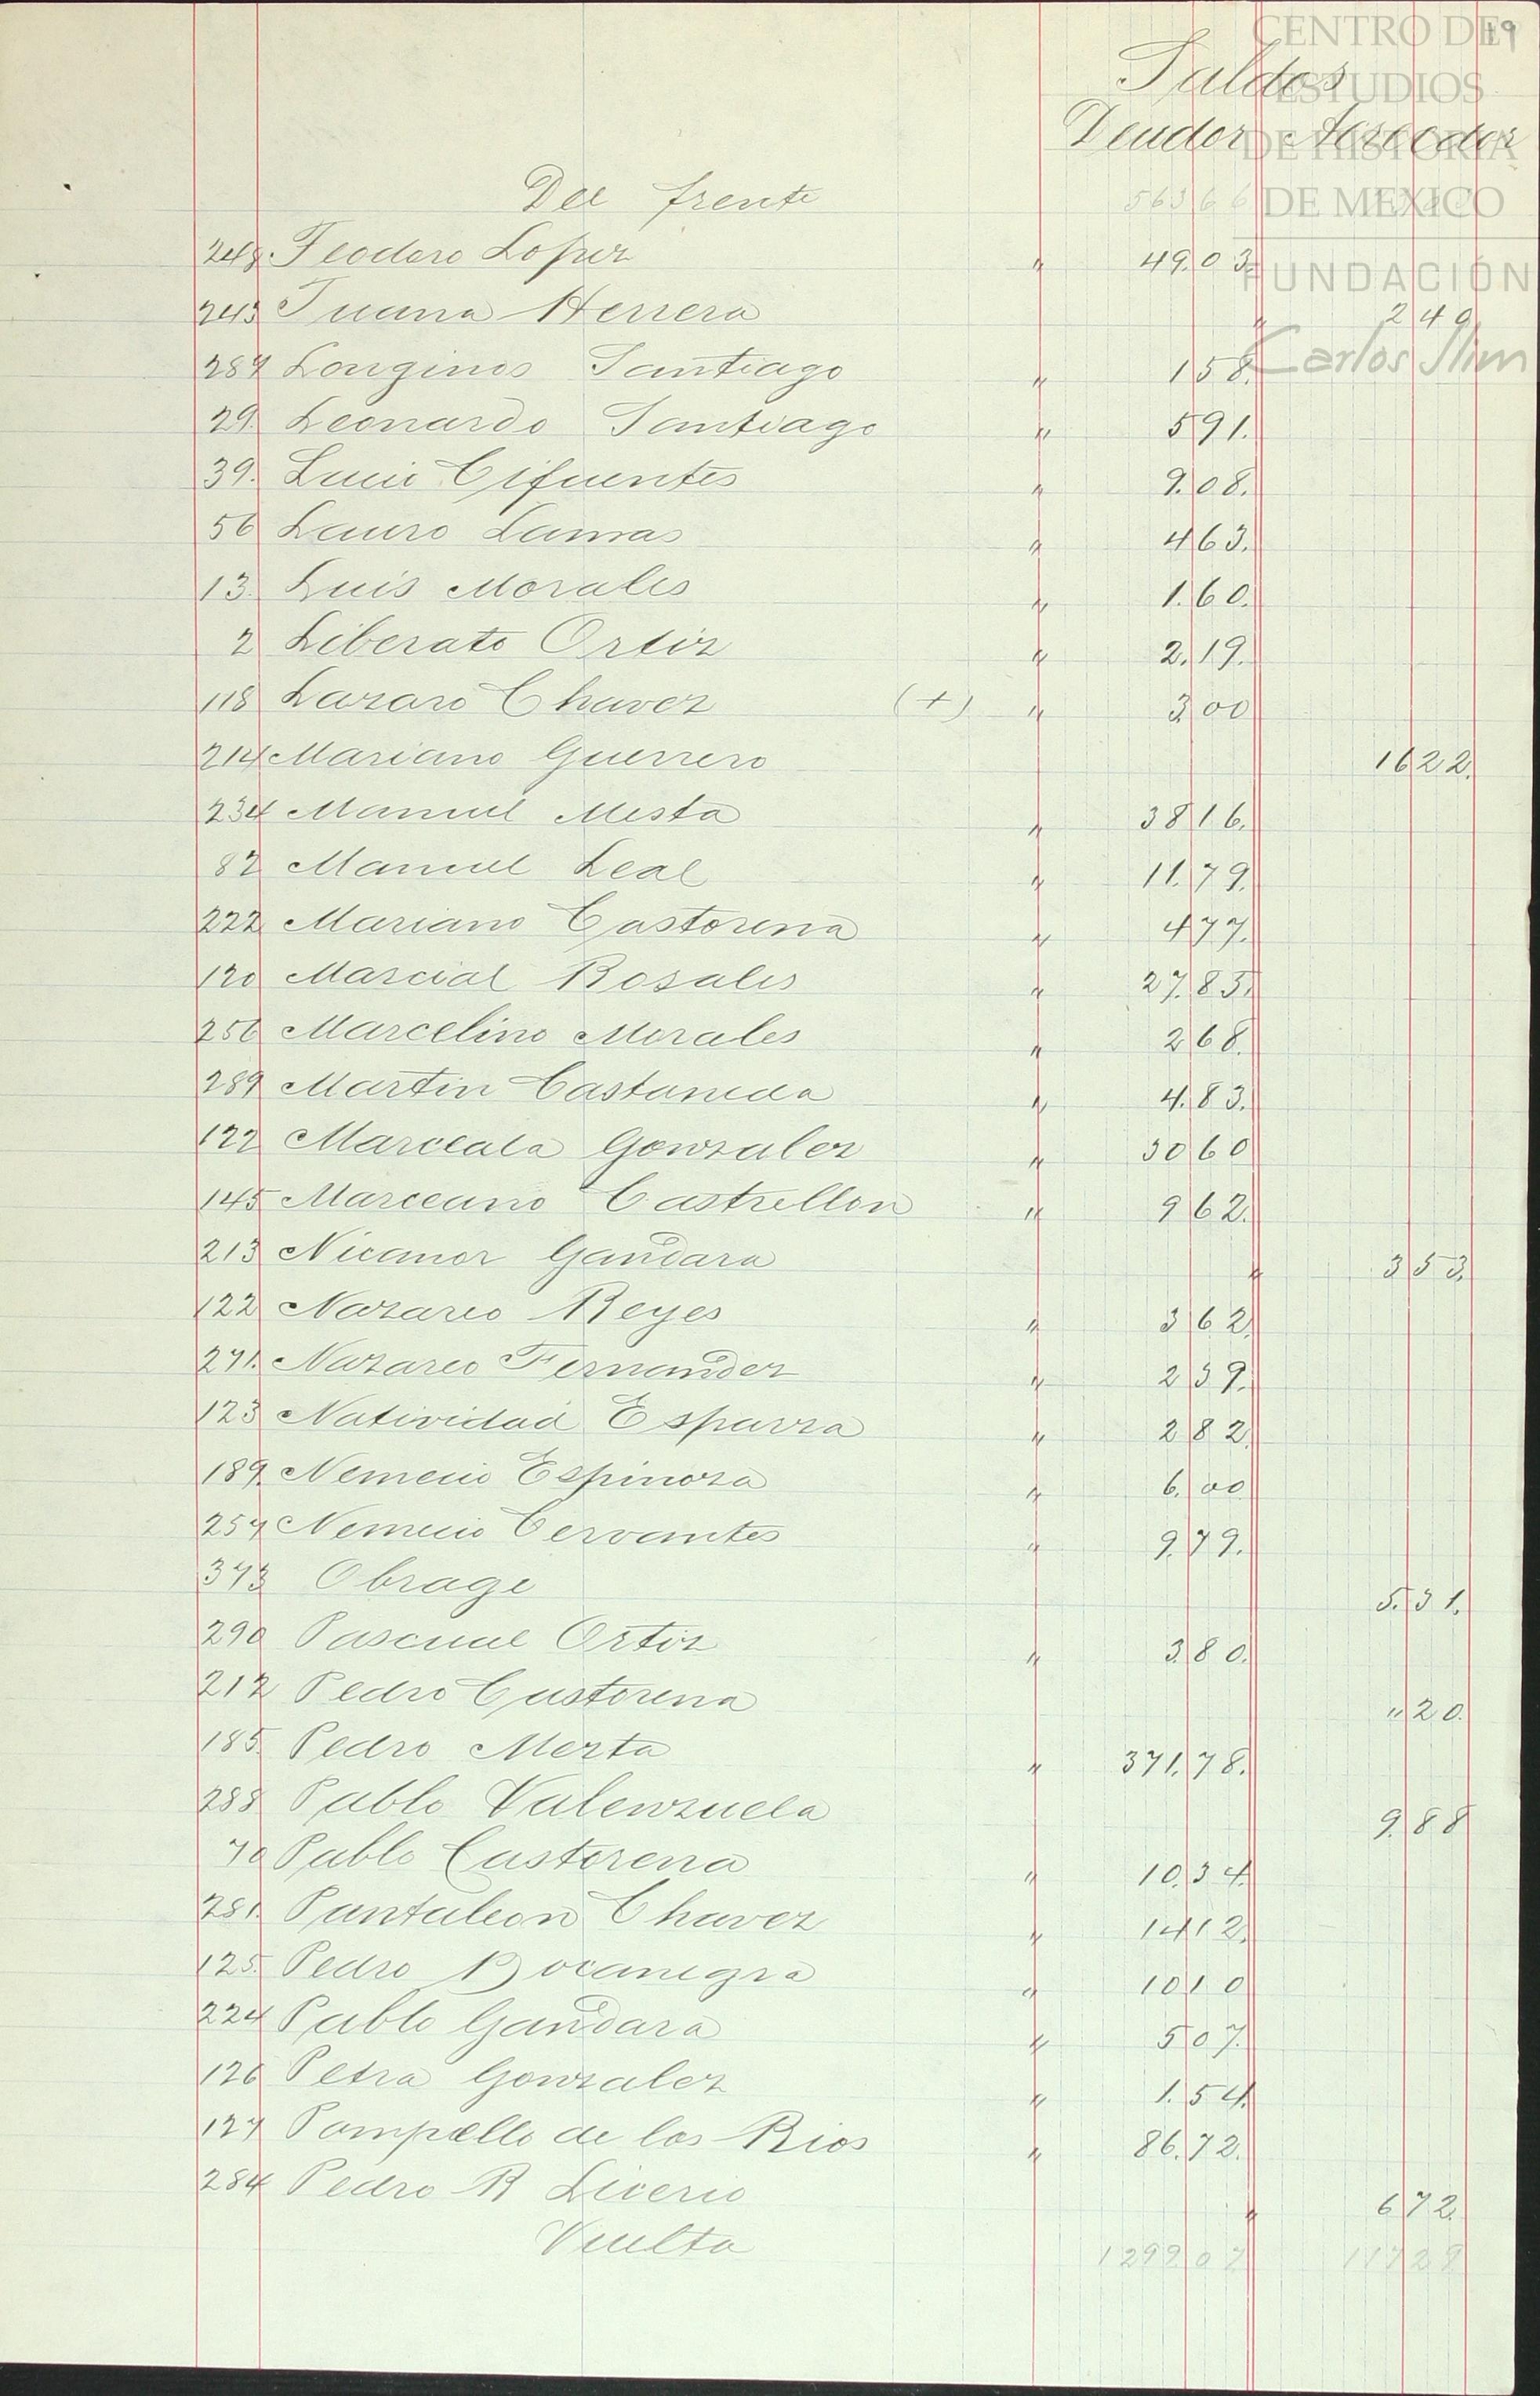 19
CENTRO DE
ESTUDIOS
DE HISTORIA
DE MEXICO
FUNDACIÓN
Carlos Slim
Saldos
Deudor Acreedor
Del frente
248 Teodoro Lopez " 49.03.
243 Juana Herrera " 2 40
287 Longinos Santiago " 1 58.
29. Leonardo Santiago " 5 91.
39. Lucio Cifuentes " 9.08.
56 Lauro Lamas " 4 63.
13. Luis Morales " 1.60.
2 Liberato Ortiz " 2.19.
118 Lazaro Chavez (+) " 3 00
214 Mariano Guerrero 16 22.
234 Manuel Mesta " 38 16.
82 Manuel Leal " 11.79.
222 Mariano Castorena " 4 77.
120 Marcial Rosales " 27.85.
256 Marcelino Morales " 2 68.
289 Martin Castaneda " 4.83.
122 Marceala Gonzalez " 30 60
145 Marceano Castrellon " 9 62.
213 Nicanor Gandara " 3 53.
122 Nazareo Reyes " 3 62.
271. Nazareo Fernandez " 2 39.
123 Natividad Esparza " 2 82.
189. Nemecio Espinoza " 6.00
257 Nemecio Cervantes " 9.79.
373 Obrage 5.31.
290 Pascual Ortiz " 3.80.
212 Pedro Castorena " 20.
185. Pedro Mezta " 371.78.
288 Pablo Valenzuela 9.88
70 Pablo Castorena " 10.34.
281. Pantaleon Chavez " 14 12.
125. Pedro Bocanegra " 10 10
224 Pablo Gandara " 5 07.
126 Petra Gonzalez " 1.54.
127 Pompello de los Rios " 86.72.
284 Pedro R Licerio " 6 72.
Vuelta 1299 07 117 28